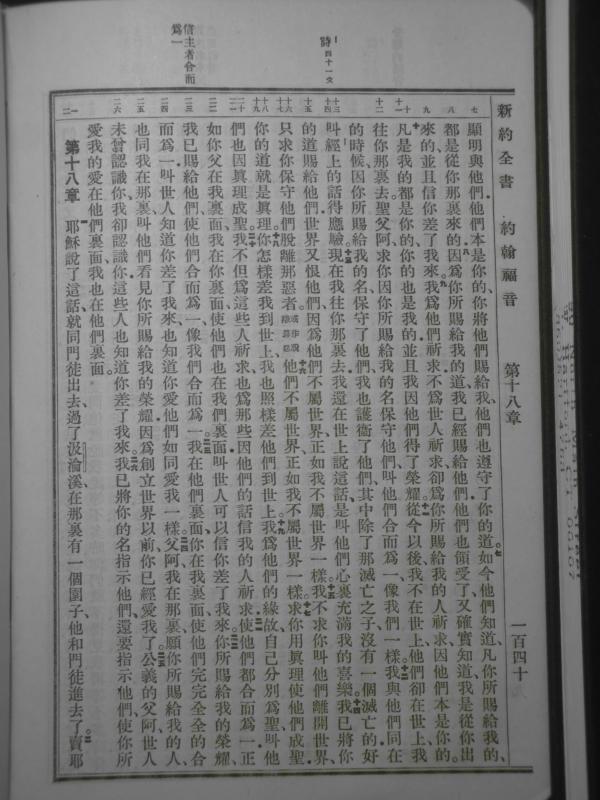 新約全書 約翰福音 第十八章 一百四十
詩四十一 
信主者合而
爲一
顯明與他們他們本是你的你將他們賜給我他們也遵守了你的道如今他們知道凡你所賜給我的
都是從你那裏來的因爲你所賜給我的道我已經賜給他們他們也領受了又確實知道我是從你出
來的並且信你差了我來我爲他們祈求不爲世人祈求卻爲你所賜給我的人祈求因他們本是你的
凡是我的都是你的你的也是我的並且我因他們得了榮耀從今以後我不在世上他們卻在世上我
往你那裏去聖父阿求你因你所賜給我的名保守他們叫他們合而爲一像我們一樣我與他們同在
的時候因你所賜給我的名保守了他們我也護衞了他們其中除了那滅亡之子沒有一個滅亡的好
叫經上的話得應驗現在我往你那裏去我還在世上說這話是叫他們心裏充滿我的喜樂我已將你
的道賜給他們世界又恨他們因爲他們不屬世界正如我不屬世界一樣我不求你叫他們離開世界
只求你保守他們脫離那惡者或作脫離罪惡他們不屬世界正如我不屬世界一樣求你用真理使他們成聖
你的道就是真理你怎樣差我到世上我也照樣差他們到世上我爲他們的緣故自己分別爲聖叫他
們也因真理成聖我不但爲這些人祈求也爲那些因他們的話信我的人祈求使他們都合而爲一正
如你父在我裏面我在你裏面使他們也在我們裏面叫世人可以信你差了我來你所賜給我的榮耀
我已賜給他們使他們合而爲一像我們合而爲一我在他們裏面你在我裏面使他們完完全全的合
而爲一叫世人知道你差了我來也知道你愛他們如同愛我一樣父阿我在那裏願你所賜給我的人
也同我在那裏叫他們看見你所賜給我的榮耀因爲創立世界以前你已經愛我了公義的父阿世人
未曾認識你我卻認識你這些人也知道你差了我來我已將你的名指示他們還要指示他們使你所
愛我的愛在他們裏面我也在他們裏面。
第十八章 耶穌說了這話就同門徒出去過了汲淪溪在那裏有一個園子他和門徒進去了賣耶